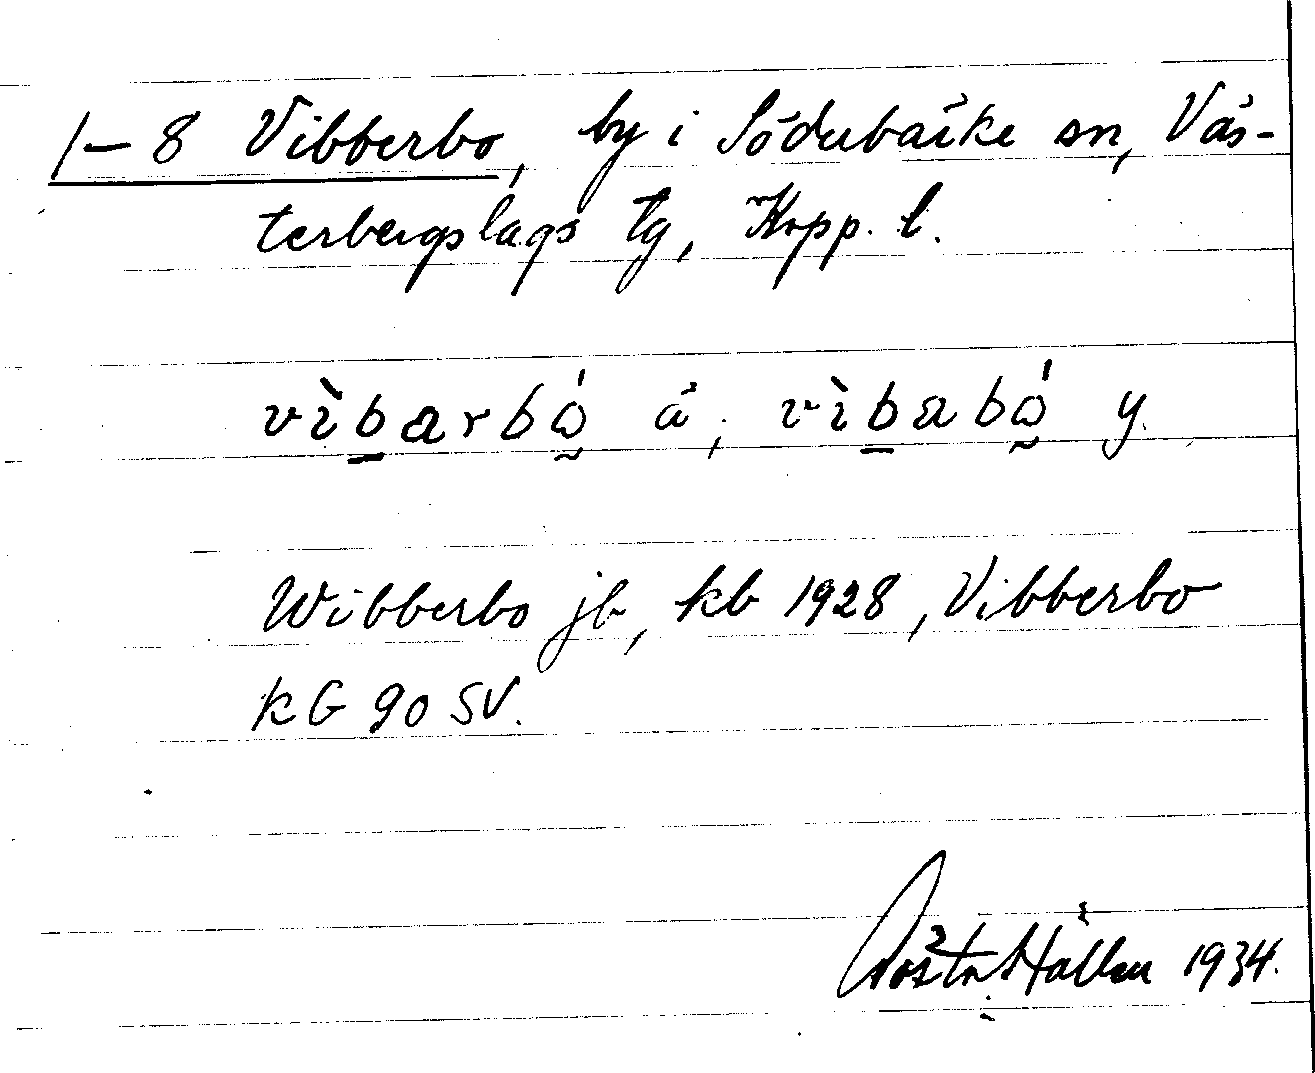 1–8 Vibberbo, by i Söderbärke sn, Väs-
terbergslags tg, Kopp. l.
vìb̲arbǻ ä, vìb̲abǻ y.
Wibberbo jb, kb 1928, Vibberbo
kG 90 SV.
Gösta Hallen 1934.